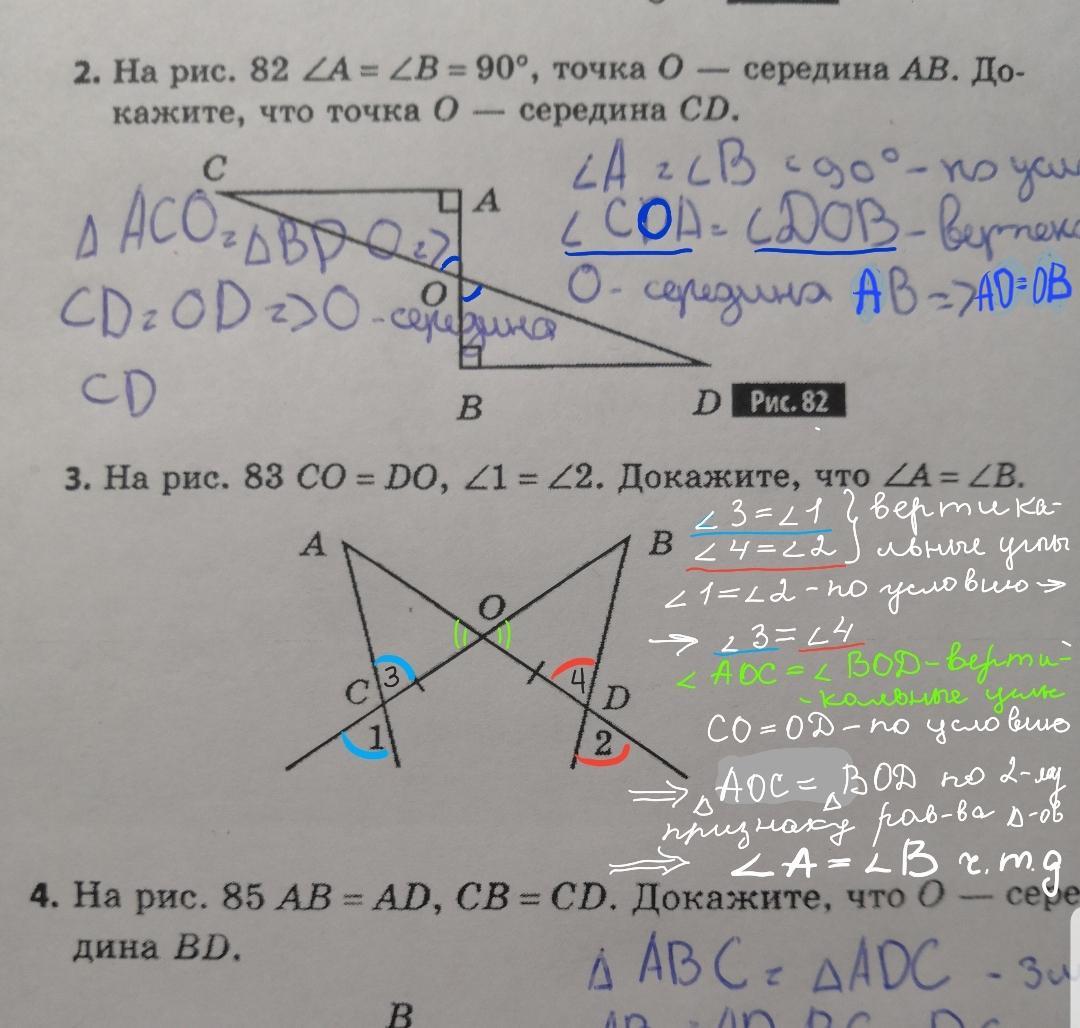 2. На рис. 82 ∠A = ∠B = 90°, точка O — середина AB. До-
кажите, что точка O — середина CD.
C
A
O
B
D
Рис. 82
∠A = ∠B = 90° - по усл
∠COA = ∠DOB - вертек
O - середина AB => AO=OB
Δ ACO = ΔBDO =>
CD = OD => O - середина
CD
3. На рис. 83 CO = DO, ∠1 = ∠2. Докажите, что ∠A = ∠B.
A
B
O
C
3
4
D
1
2
∠3=∠1 } вертика-
∠4=∠2 льные углы
∠1=∠2 - по условию →
→ ∠3=∠4
∠AOC = ∠BOD - верти-
-кальные углы
CO=OD - по условию
=> ΔAOC = ΔBOD по 2-му
признаку рав-ва Δ-ов
=> ∠A = ∠B ч.т.д
4. На рис. 85 AB = AD, CB = CD. Докажите, что O — сере
дина BD.
Δ ABC = ΔADC -
B